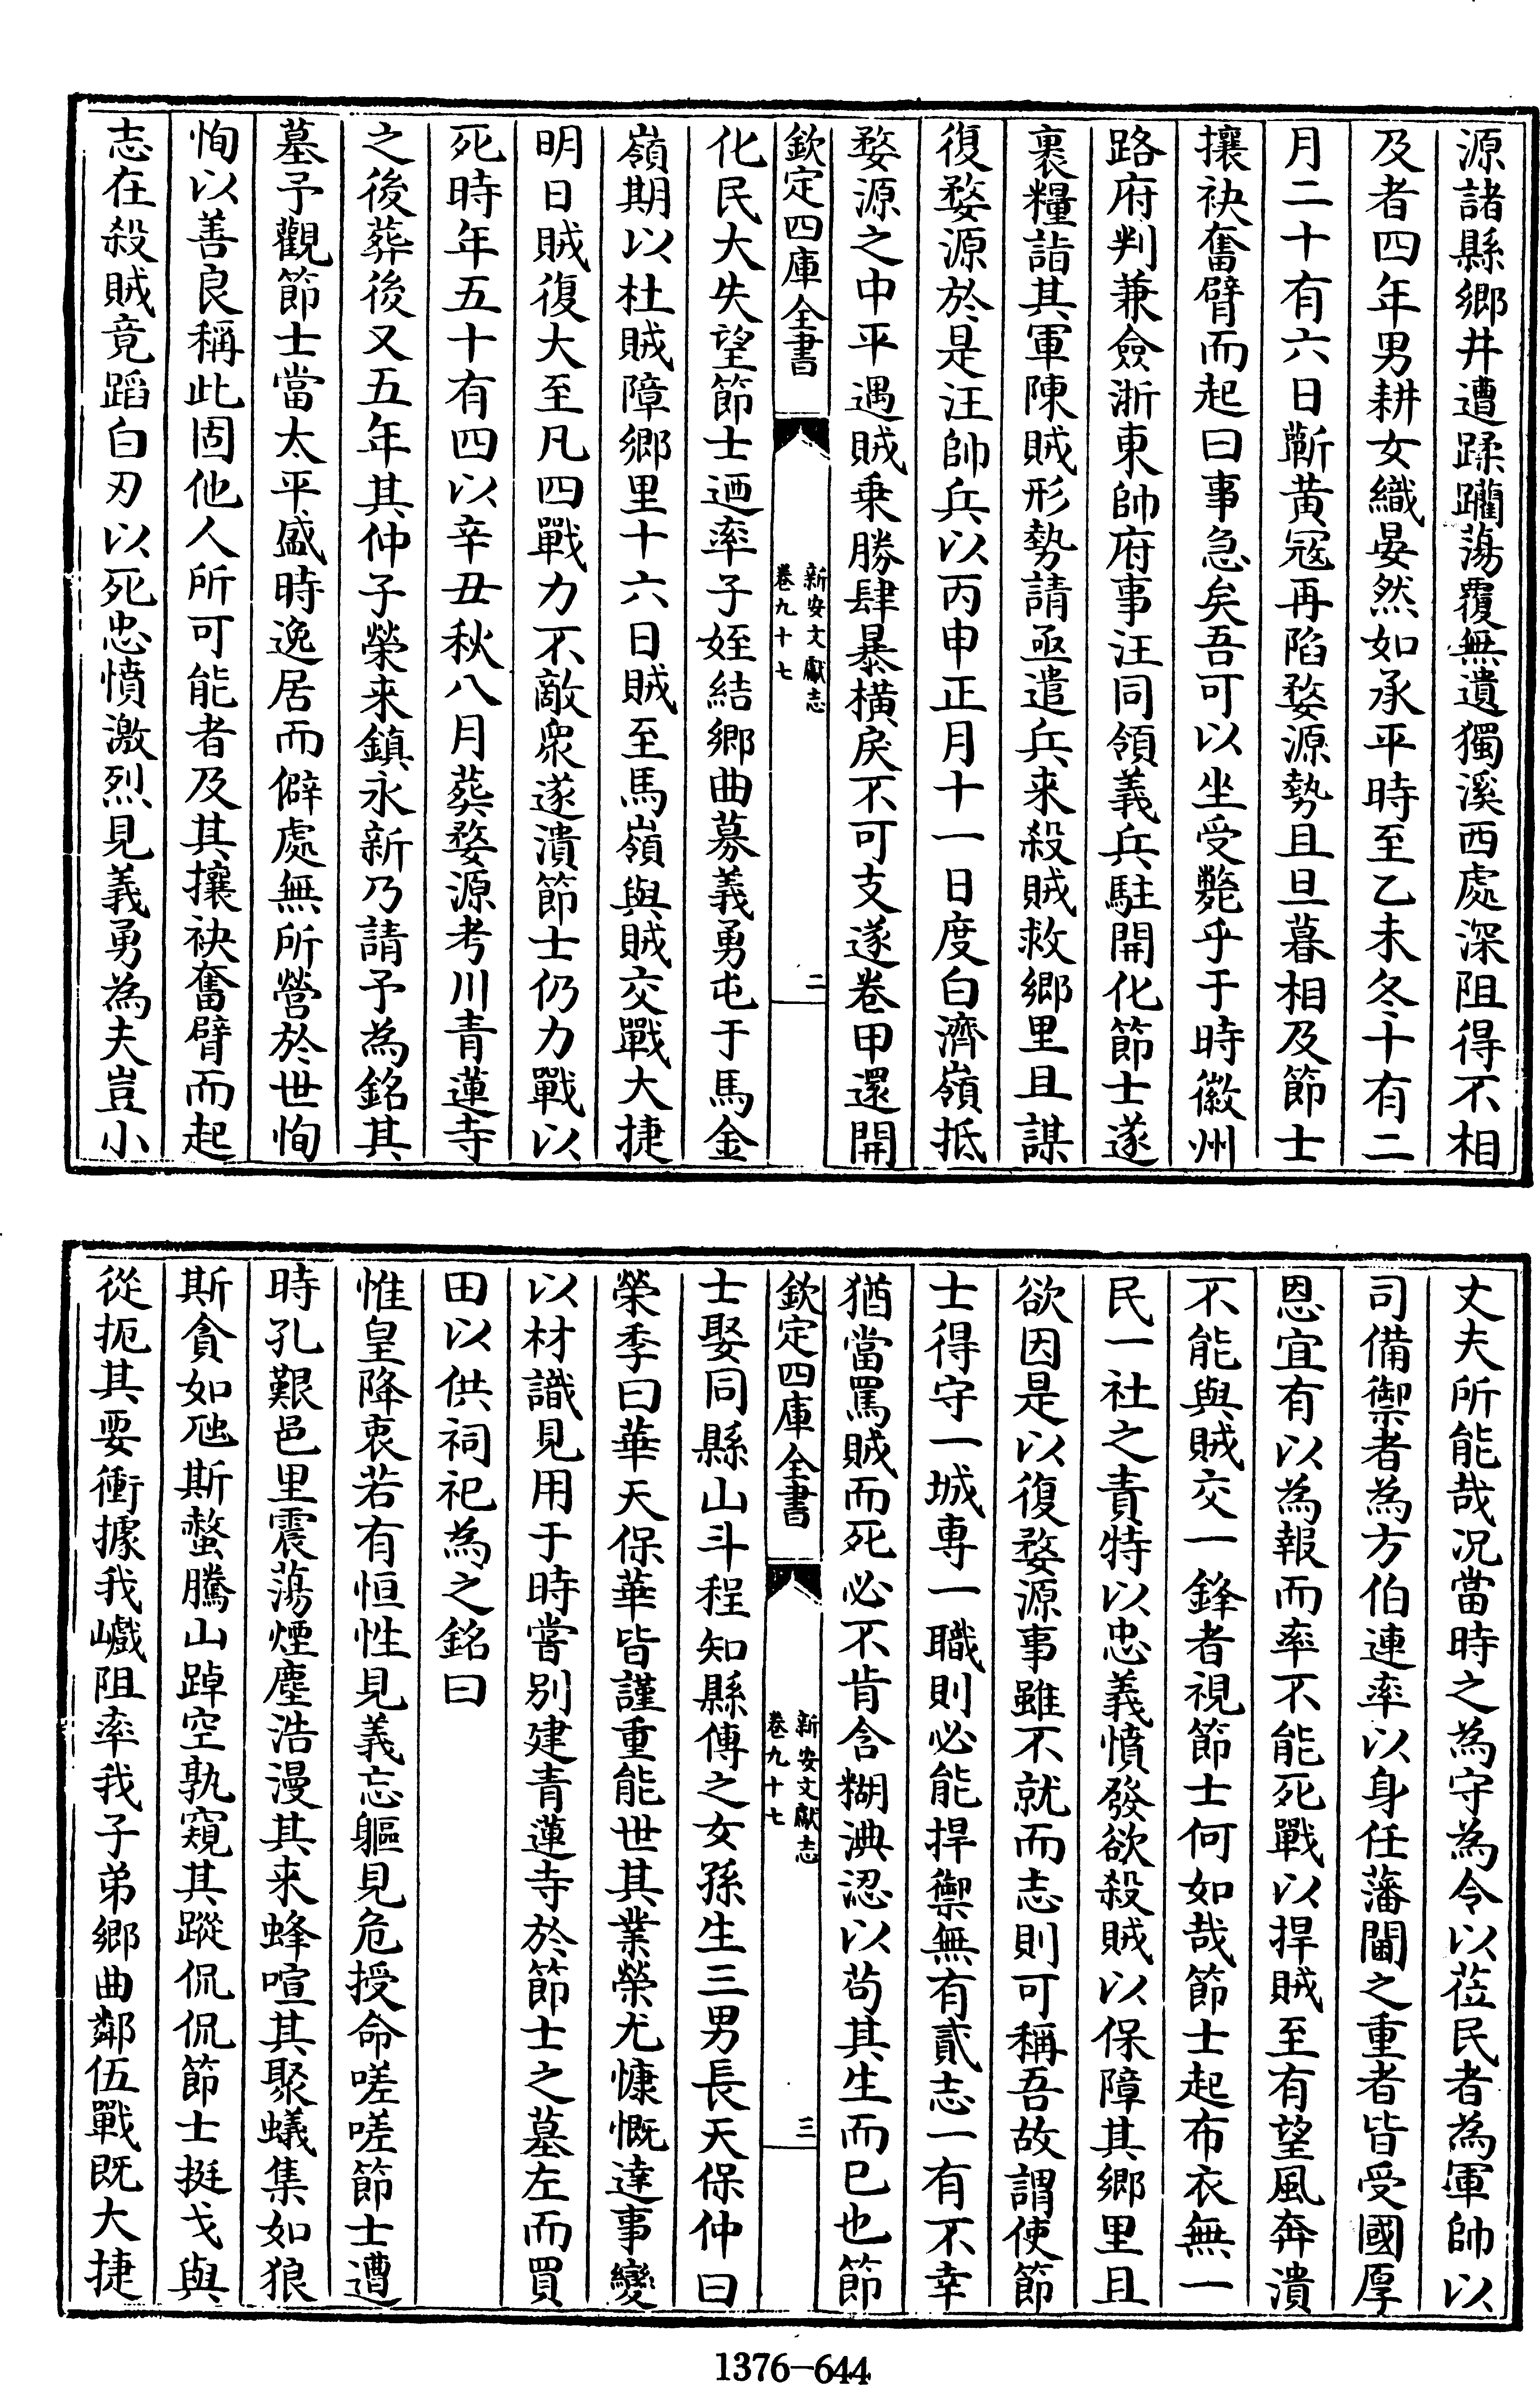 源諸縣鄉井遭蹂躪蕩覆無遺獨溪西處深阻得不相
及者四年男耕女織晏然如承平時至乙未冬十有二
月二十有六日蘄黃冦再陷婺源勢且旦暮相及節士
攘袂奮臂而起曰事急矣吾可以坐受斃乎于時徽州
路府判兼僉浙東帥府事汪同領義兵駐開化節士遂
裹糧詣其軍陳賊形勢請亟遣兵来殺賊救鄉里且謀
復婺源於是汪帥兵以丙申正月十一日度白濟嶺抵
婺源之中平遇賊乗勝肆暴橫戾不可支遂卷甲還開
欽定四庫全書
新安文獻志
卷九十七
二
化民大失望節士迺率子姪結鄉曲募義勇屯于馬金
嶺期以杜賊障鄉里十六日賊至馬嶺與賊交戰大捷
明日賊復大至凡四戰力不敵衆遂潰節士仍力戰以
死時年五十有四以辛丑秋八月葬婺源考川青蓮寺
之後葬後又五年其仲子榮来鎮永新乃請予為銘其
墓予觀節士當太平盛時逸居而僻處無所營於世恂
恂以善良稱此固他人所可能者及其攘袂奮臂而起
志在殺賊竟蹈白刃以死忠憤激烈見義勇為夫豈小
丈夫所能哉况當時之為守為令以莅民者為軍帥以
司備禦者為方伯連率以身任藩閫之重者皆受國厚
恩宜有以為報而率不能死戰以捍賊至有望風奔潰
不能與賊交一鋒者視節士何如哉節士起布衣無一
民一社之責特以忠義憤發欲殺賊以保障其鄉里且
欲因是以復婺源事雖不就而志則可稱吾故謂使節
士得守一城専一職則必能捍禦無有貳志一有不幸
猶當罵賊而死必不肯含糊淟涊以苟其生而已也節
欽定四庫全書
新安文獻志
卷九十七
三
士娶同縣山斗程知縣傳之女孫生三男長天保仲曰
榮季曰華天保華皆謹重能世其業榮尤慷慨達事變
以材識見用于時嘗别建青蓮寺於節士之墓左而買
田以供祠祀為之銘曰
惟皇降衷若有恒性見義忘軀見危授命嗟嗟節士遭
時孔艱邑里震蕩煙塵浩漫其来蜂喧其聚蟻集如狼
斯貪如虺斯螫騰山踔空孰窺其蹤侃侃節士挺戈與
從扼其要衝據我巇阻率我子弟鄉曲鄰伍戰既大捷
1376-644